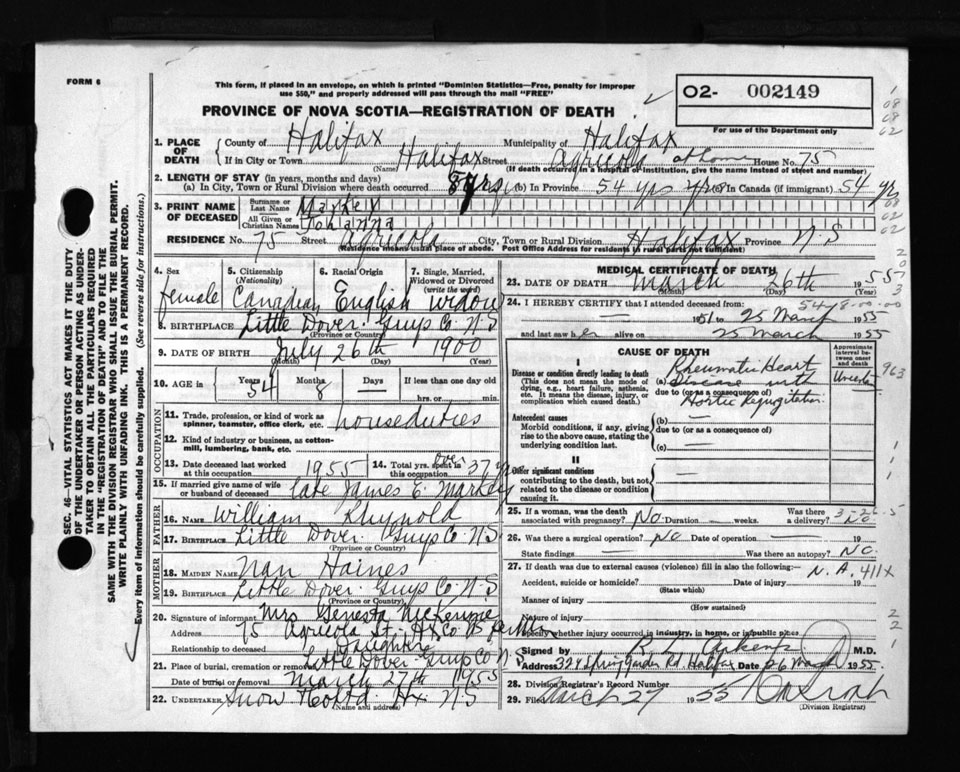 FORM 6
This form, if placed in an envelope, on which is printed "Dominion Statistics—Free, penalty for improper
use $50," and properly addressed will pass through the mail "FREE"
PROVINCE OF NOVA SCOTIA—REGISTRATION OF DEATH
O2- 002149
For use of the Department only
1. PLACE OF DEATH County of Halifax Municipality of Halifax
If in City or Town Halifax Street Agricola at home House No. 75
(Name) (If death occurred in a hospital or institution, give the name instead of street and number)
2. LENGTH OF STAY (in years, months and days)
(a) In City, Town or Rural Division where death occurred 8 yrs (b) In Province 54 yrs (c) In Canada (if immigrant) 54 yrs
3. PRINT NAME OF DECEASED Surname or Last Name Markey
All Given or Christian Names Johanna
RESIDENCE No. 75 Street Agricola City, Town or Rural Division Halifax Province N.S
(Residence means usual place of abode. Post Office Address for residents in rural parts not sufficient)
4. Sex female
5. Citizenship (Nationality) Canadian
6. Racial Origin English
7. Single, Married, Widowed or Divorced (write the word) widow
8. BIRTHPLACE Little Dover Guys Co N.S
(Province or Country)
9. DATE OF BIRTH July 26th 1900
(Month) (Day) (Year)
10. AGE in Years 54 Months 8 Days If less than one day old hrs. or min.
OCCUPATION
11. Trade, profession, or kind of work as spinner, teamster, office clerk, etc. houseduties
12. Kind of industry or business, as cotton-mill, lumbering, bank, etc.
13. Date deceased last worked at this occupation 1955
14. Total yrs. spent in this occupation over 37 yrs
15. If married give name of wife or husband of deceased late James E. Markey
FATHER
16. NAME William Rhynold
17. BIRTHPLACE Little Dover Guys Co N.S
(Province or Country)
MOTHER
18. MAIDEN NAME Nan Haines
19. BIRTHPLACE Little Dover Guys Co N.S
(Province or Country)
20. Signature of informant Mrs Genesta McKenzie
Address 75 Agricola St. Hx Co NS
Relationship to deceased Daughter
21. Place of burial, cremation or removal Little Dover Guys Co N.S
Date of burial or removal March 27th 1955
22. UNDERTAKER Snow Hx N.S
(Name and address)
MEDICAL CERTIFICATE OF DEATH
23. DATE OF DEATH March 26th 1955
(Month) (Day) (Year)
24. I HEREBY CERTIFY that I attended deceased from:
— 1951 to 25 March 1955
and last saw her alive on 25 March 1955
CAUSE OF DEATH
Approximate interval between onset and death
I
Disease or condition directly leading to death
(This does not mean the mode of dying, e.g., heart failure, asthenia, etc. It means the disease, injury, or complication which caused death.)
(a) Rheumatic Heart Disease with
due to (or as a consequence of)
Aortic Regurgitation
Antecedent causes
Morbid conditions, if any, giving rise to the above cause, stating the underlying condition last.
(b) —
due to (or as a consequence of)
(c) —
II
Other significant conditions
contributing to the death, but not related to the disease or condition causing it.
25. If a woman, was the death associated with pregnancy? No Duration — weeks. Was there a delivery? No
26. Was there a surgical operation? No Date of operation — 19
State findings — Was there an autopsy? No
27. If death was due to external causes (violence) fill in also the following:— N.A. 411X
Accident, suicide or homicide? Date of injury 19
(State which)
Manner of injury
(How sustained)
Nature of injury
Specify whether injury occurred in industry, in home, or in public place
Signed by M.D.
Address 324 Spring Garden Rd. Halifax Date 26 March 1955
28. Division Registrar's Record Number
29. Filed March 27 1955
(Division Registrar)
SEC. 46—VITAL STATISTICS ACT MAKES IT THE DUTY
OF THE UNDERTAKER OR PERSON ACTING AS UNDER-
TAKER TO OBTAIN ALL THE PARTICULARS REQUIRED
IN THE "REGISTRATION OF DEATH" AND TO FILE THE
SAME WITH THE DIVISION REGISTRAR WHO SHALL ISSUE THE BURIAL PERMIT.
WRITE PLAINLY WITH UNFADING INK. THIS IS A PERMANENT RECORD.
Every item of information should be carefully supplied. (See reverse side for instructions.)